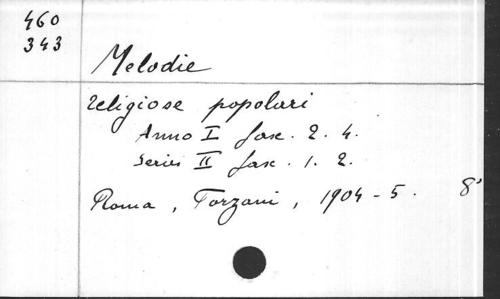 460
343
Melodie
religiose popolari
Anno I fasc. 2. 4.
Series II fasc. 1. 2.
Roma, Forzani, 1904-5. 8°